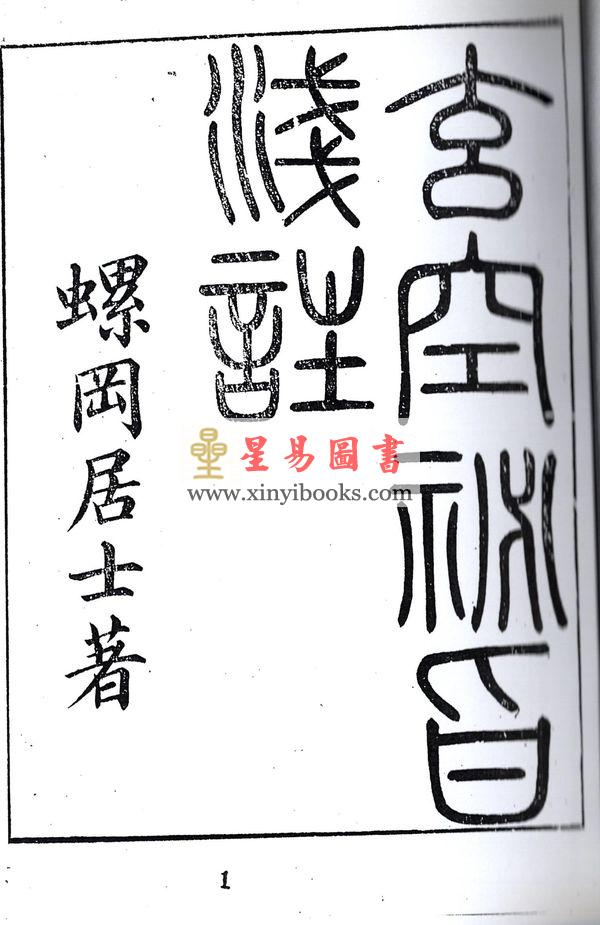 玄空祕旨
淺註
螺岡居士著
星易圖書
www.xinyibooks.com
1